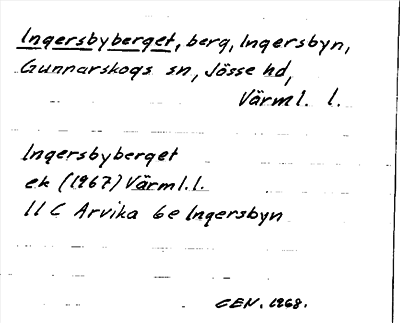 Ingersbyberget, berg, Ingersbyn,
Gunnarskogs sn, Jösse hd,
Värml. l.
Ingersbyberget
ek (1967) Värml.l.
11 C Arvika 6e Ingersbyn
CEN. 1968.